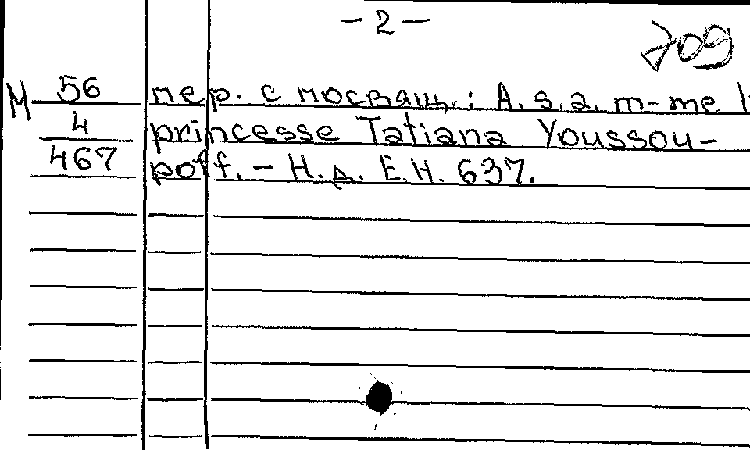 -2-
709
М 56 пер. с посвящ.: A. s. a. m-me l
4 princesse Tatiana Youssou-
467 poff. — Н.д. Е.Н. 637.